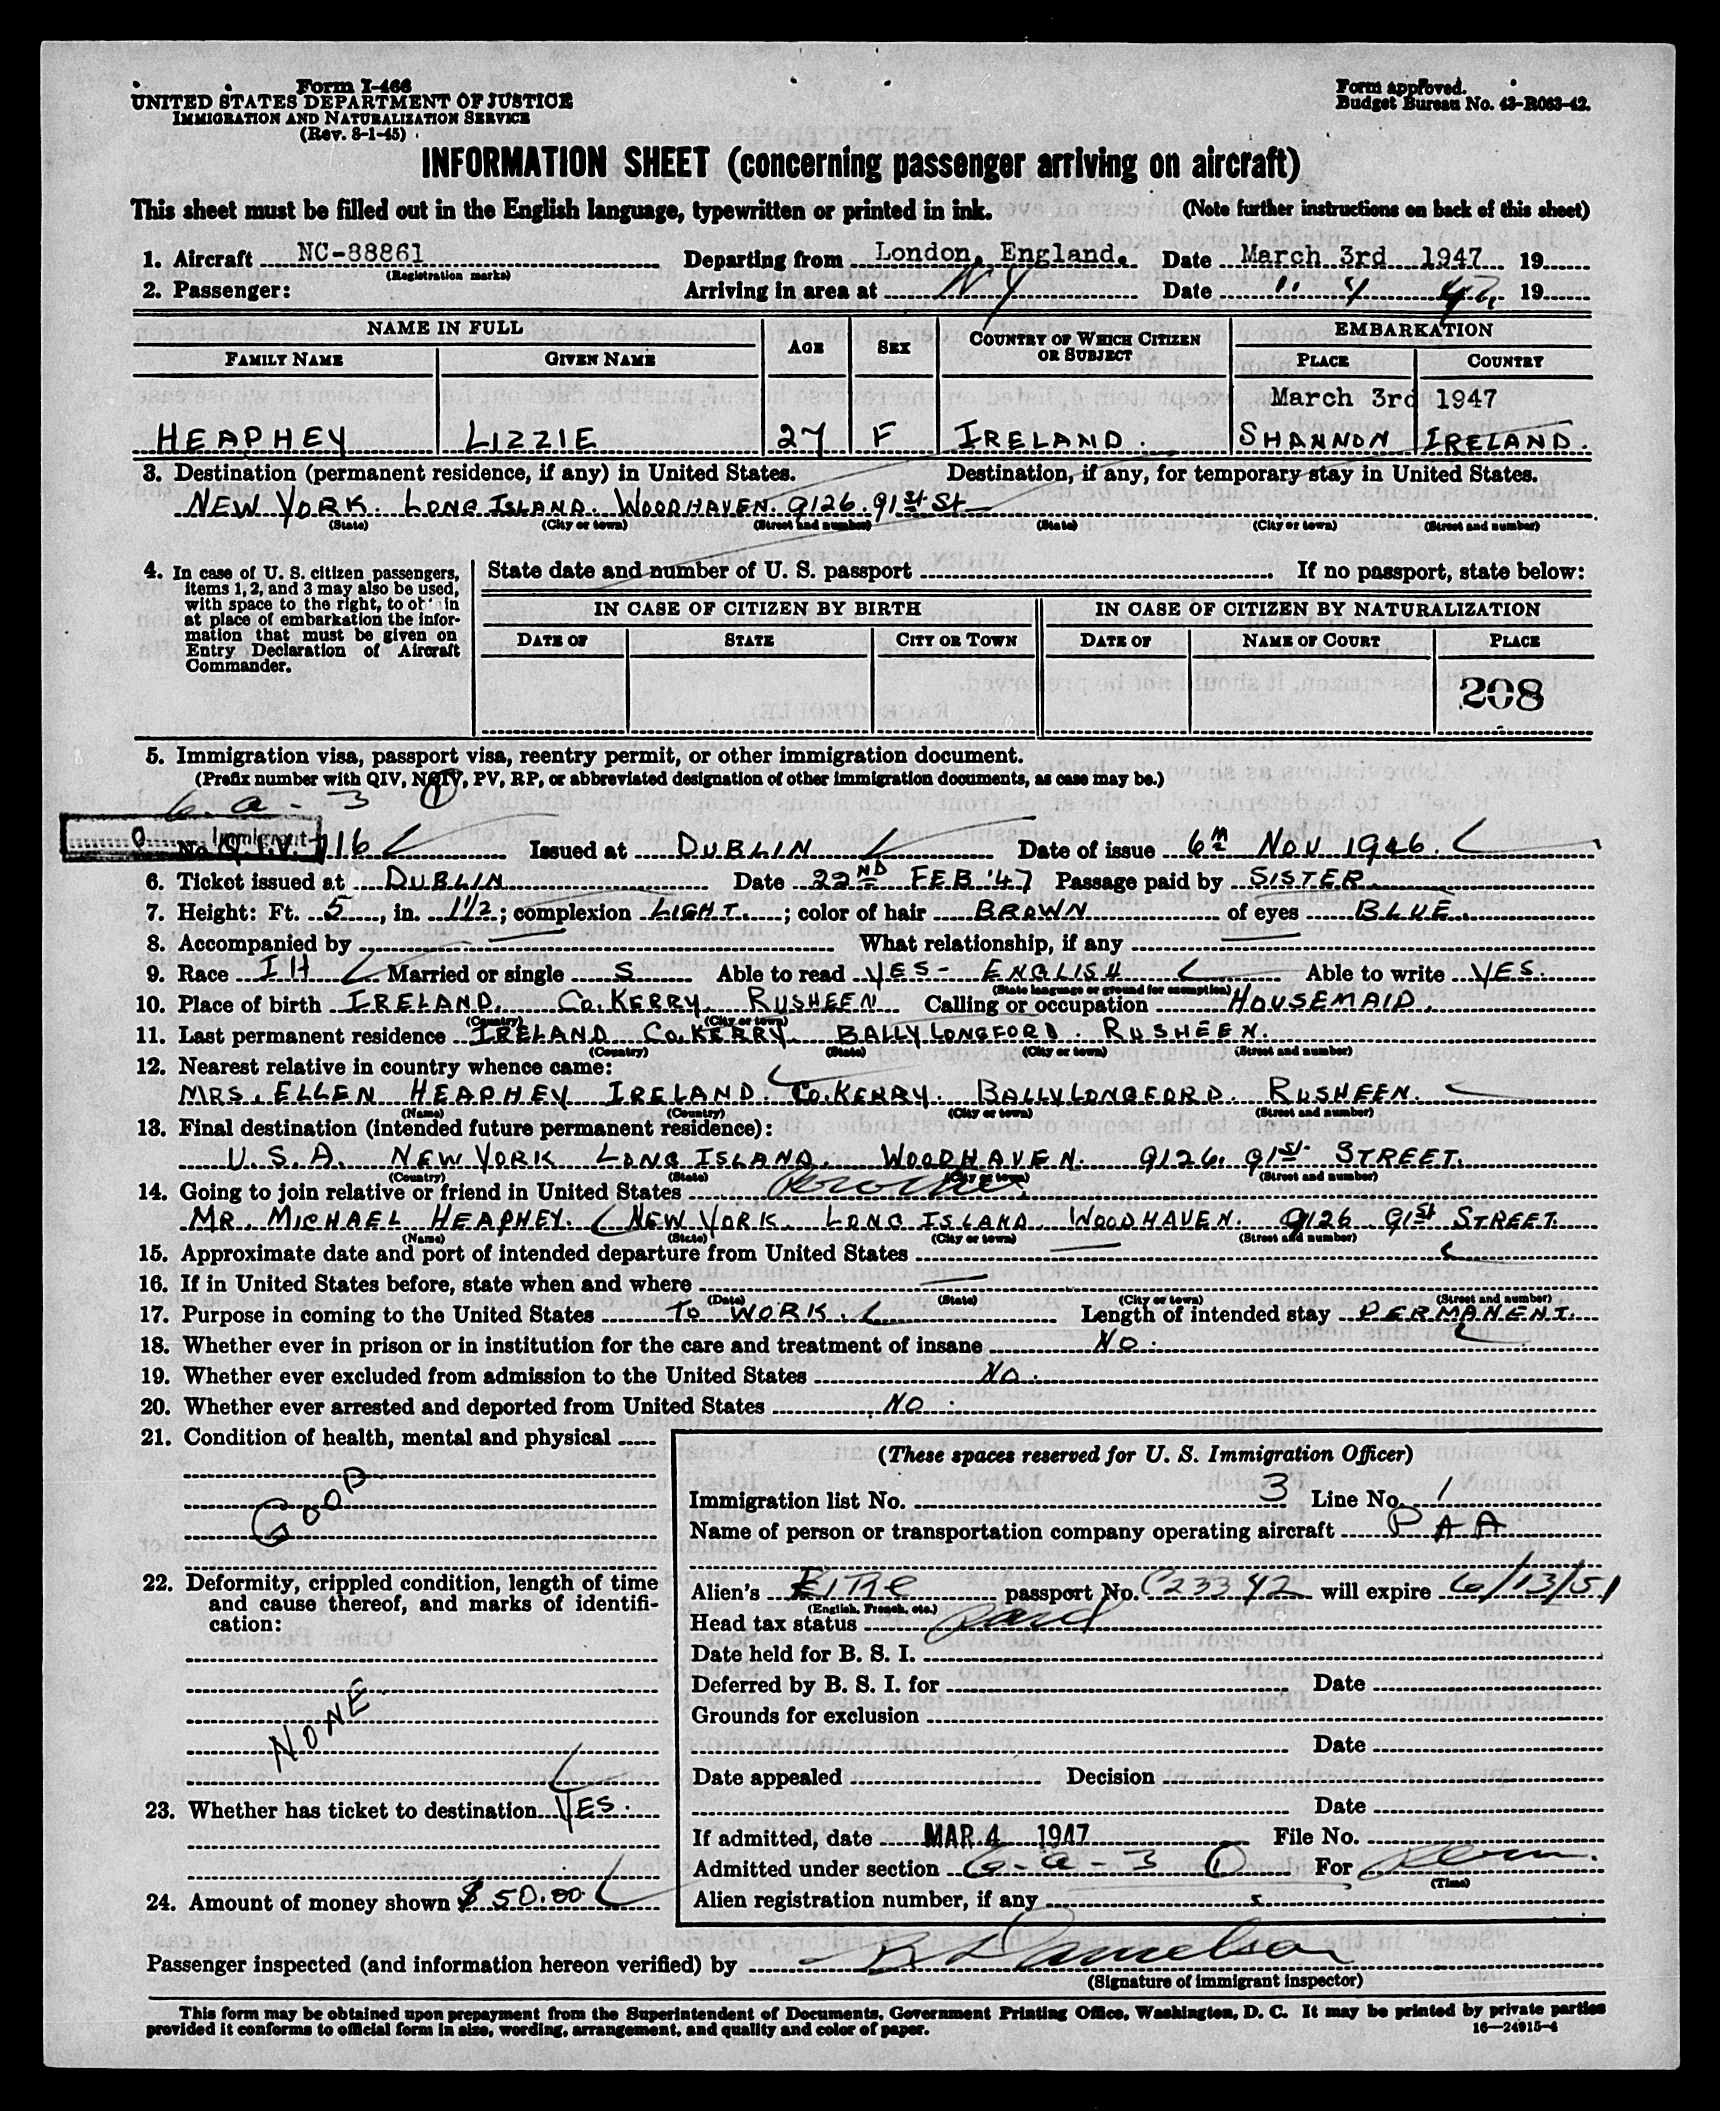 Form I-466
UNITED STATES DEPARTMENT OF JUSTICE
IMMIGRATION AND NATURALIZATION SERVICE
(Rev. 8-1-45)
Form approved.
Budget Bureau No. 43-R063-42.
INFORMATION SHEET (concerning passenger arriving on aircraft)
This sheet must be filled out in the English language, typewritten or printed in ink. (Note further instructions on back of this sheet)
1. Aircraft NC-88861 Departing from London, England. Date March 3rd 1947 19
(Registration marks)
2. Passenger: Arriving in area at NY Date " 4 47 19
NAME IN FULL AGE SEX COUNTRY OF WHICH CITIZEN OR SUBJECT EMBARKATION
FAMILY NAME GIVEN NAME PLACE COUNTRY
March 3rd 1947
HEAPHEY LIZZIE 27 F IRELAND. SHANNON IRELAND.
3. Destination (permanent residence, if any) in United States. Destination, if any, for temporary stay in United States.
NEW YORK. LONG ISLAND. WOODHAVEN. 9126. 91st St
(State) (City or town) (Street and number) (State) (City or town) (Street and number)
4. In case of U. S. citizen passengers, items 1, 2, and 3 may also be used, with space to the right, to ob in at place of embarkation the information that must be given on Entry Declaration of Aircraft Commander.
State date and number of U. S. passport If no passport, state below:
IN CASE OF CITIZEN BY BIRTH IN CASE OF CITIZEN BY NATURALIZATION
DATE OF STATE CITY OR TOWN DATE OF NAME OF COURT PLACE
208
5. Immigration visa, passport visa, reentry permit, or other immigration document.
(Prefix number with QIV, NQIV, PV, RP, or abbreviated designation of other immigration documents, as case may be.)
6-a-3 (1)
Immigrant
No. Q.I.V. 116 Issued at DUBLIN Date of issue 6th NOV 1946.
6. Ticket issued at DUBLIN Date 22ND FEB '47 Passage paid by SISTER.
7. Height: Ft. 5, in. 1 1/2; complexion LIGHT.; color of hair BROWN of eyes BLUE.
8. Accompanied by — What relationship, if any —
9. Race IH Married or single S Able to read YES - ENGLISH Able to write YES.
(State language or ground for exemption)
10. Place of birth IRELAND. Co. KERRY. RUSHEEN Calling or occupation HOUSEMAID.
(Country) (City or town)
11. Last permanent residence IRELAND Co. KERRY. BALLYLONGFORD. RUSHEEN.
(Country) (State) (City or town) (Street and number)
12. Nearest relative in country whence came:
MRS. ELLEN HEAPHEY IRELAND. Co. KERRY. BALLYLONGFORD. RUSHEEN.
(Name) (Country) (City or town) (Street and number)
13. Final destination (intended future permanent residence):
U.S.A. NEW YORK LONG ISLAND. WOODHAVEN. 9126. 91st. STREET.
(Country) (State) (City or town) (Street and number)
14. Going to join relative or friend in United States Brother
MR. MICHAEL HEAPHEY. NEW YORK. LONG ISLAND. WOODHAVEN. 9126 91st STREET.
(Name) (State) (City or town) (Street and number)
15. Approximate date and port of intended departure from United States —
16. If in United States before, state when and where —
(Date) (State) (City or town) (Street and number)
17. Purpose in coming to the United States TO WORK. Length of intended stay PERMANENT.
18. Whether ever in prison or in institution for the care and treatment of insane NO.
19. Whether ever excluded from admission to the United States NO.
20. Whether ever arrested and deported from United States NO.
21. Condition of health, mental and physical
GOOD
22. Deformity, crippled condition, length of time and cause thereof, and marks of identification:
NONE
23. Whether has ticket to destination YES.
24. Amount of money shown $50.00
(These spaces reserved for U. S. Immigration Officer)
Immigration list No. 3 Line No. 1
Name of person or transportation company operating aircraft P A A
Alien's Eire passport No. C23342 will expire 6/13/51
(English, French, etc.)
Head tax status Paid
Date held for B. S. I.
Deferred by B. S. I. for Date
Grounds for exclusion
Date
Date appealed Decision
Date
If admitted, date MAR 4 1947 File No.
Admitted under section 6-a-3 (1) For Perm.
(Time)
Alien registration number, if any
Passenger inspected (and information hereon verified) by Danielson
(Signature of immigrant inspector)
This form may be obtained upon prepayment from the Superintendent of Documents, Government Printing Office, Washington, D. C. It may be printed by private parties
provided it conforms to official form in size, wording, arrangement, and quality and color of paper. 16—24915-4